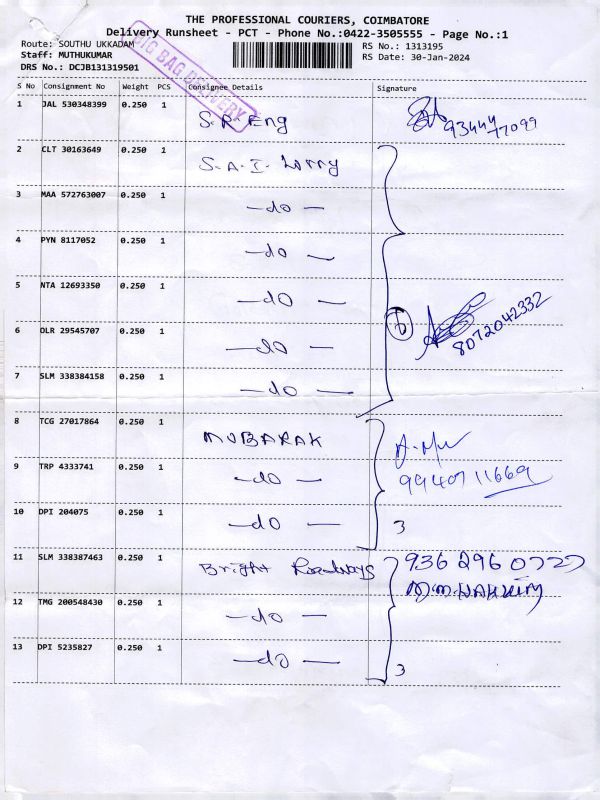 THE PROFESSIONAL COURIERS, COIMBATORE
Delivery Runsheet - PCT - Phone No.:0422-3505555 - Page No.:1
Route: SOUTHU UKKADAM
RS No.: 1313195
Staff: MUTHUKUMAR
RS Date: 30-Jan-2024
DRS No.: DCJB131319501
BIG BAG DELIVERY
S No Consignment No Weight PCS Consignee Details Signature
1 JAL 530348399 0.250 1 S.R. Eng 93444 77099
2 CLT 30163649 0.250 1 S.A.I. Lorry
3 MAA 572763007 0.250 1 —do—
4 PYN 8117052 0.250 1 —do—
5 NTA 12693350 0.250 1 —do— 8072042332
6 DLR 29545707 0.250 1 —do—
7 SLM 338384158 0.250 1 —do—
8 TCG 27017864 0.250 1 MUBARAK
9 TRP 4333741 0.250 1 —do— 9940711669
10 DPI 204075 0.250 1 —do— 3
11 SLM 338387463 0.250 1 Bright Roadways 936 296 0727
12 TMG 200548430 0.250 1 —do—
13 DPI 5235827 0.250 1 —do— 3